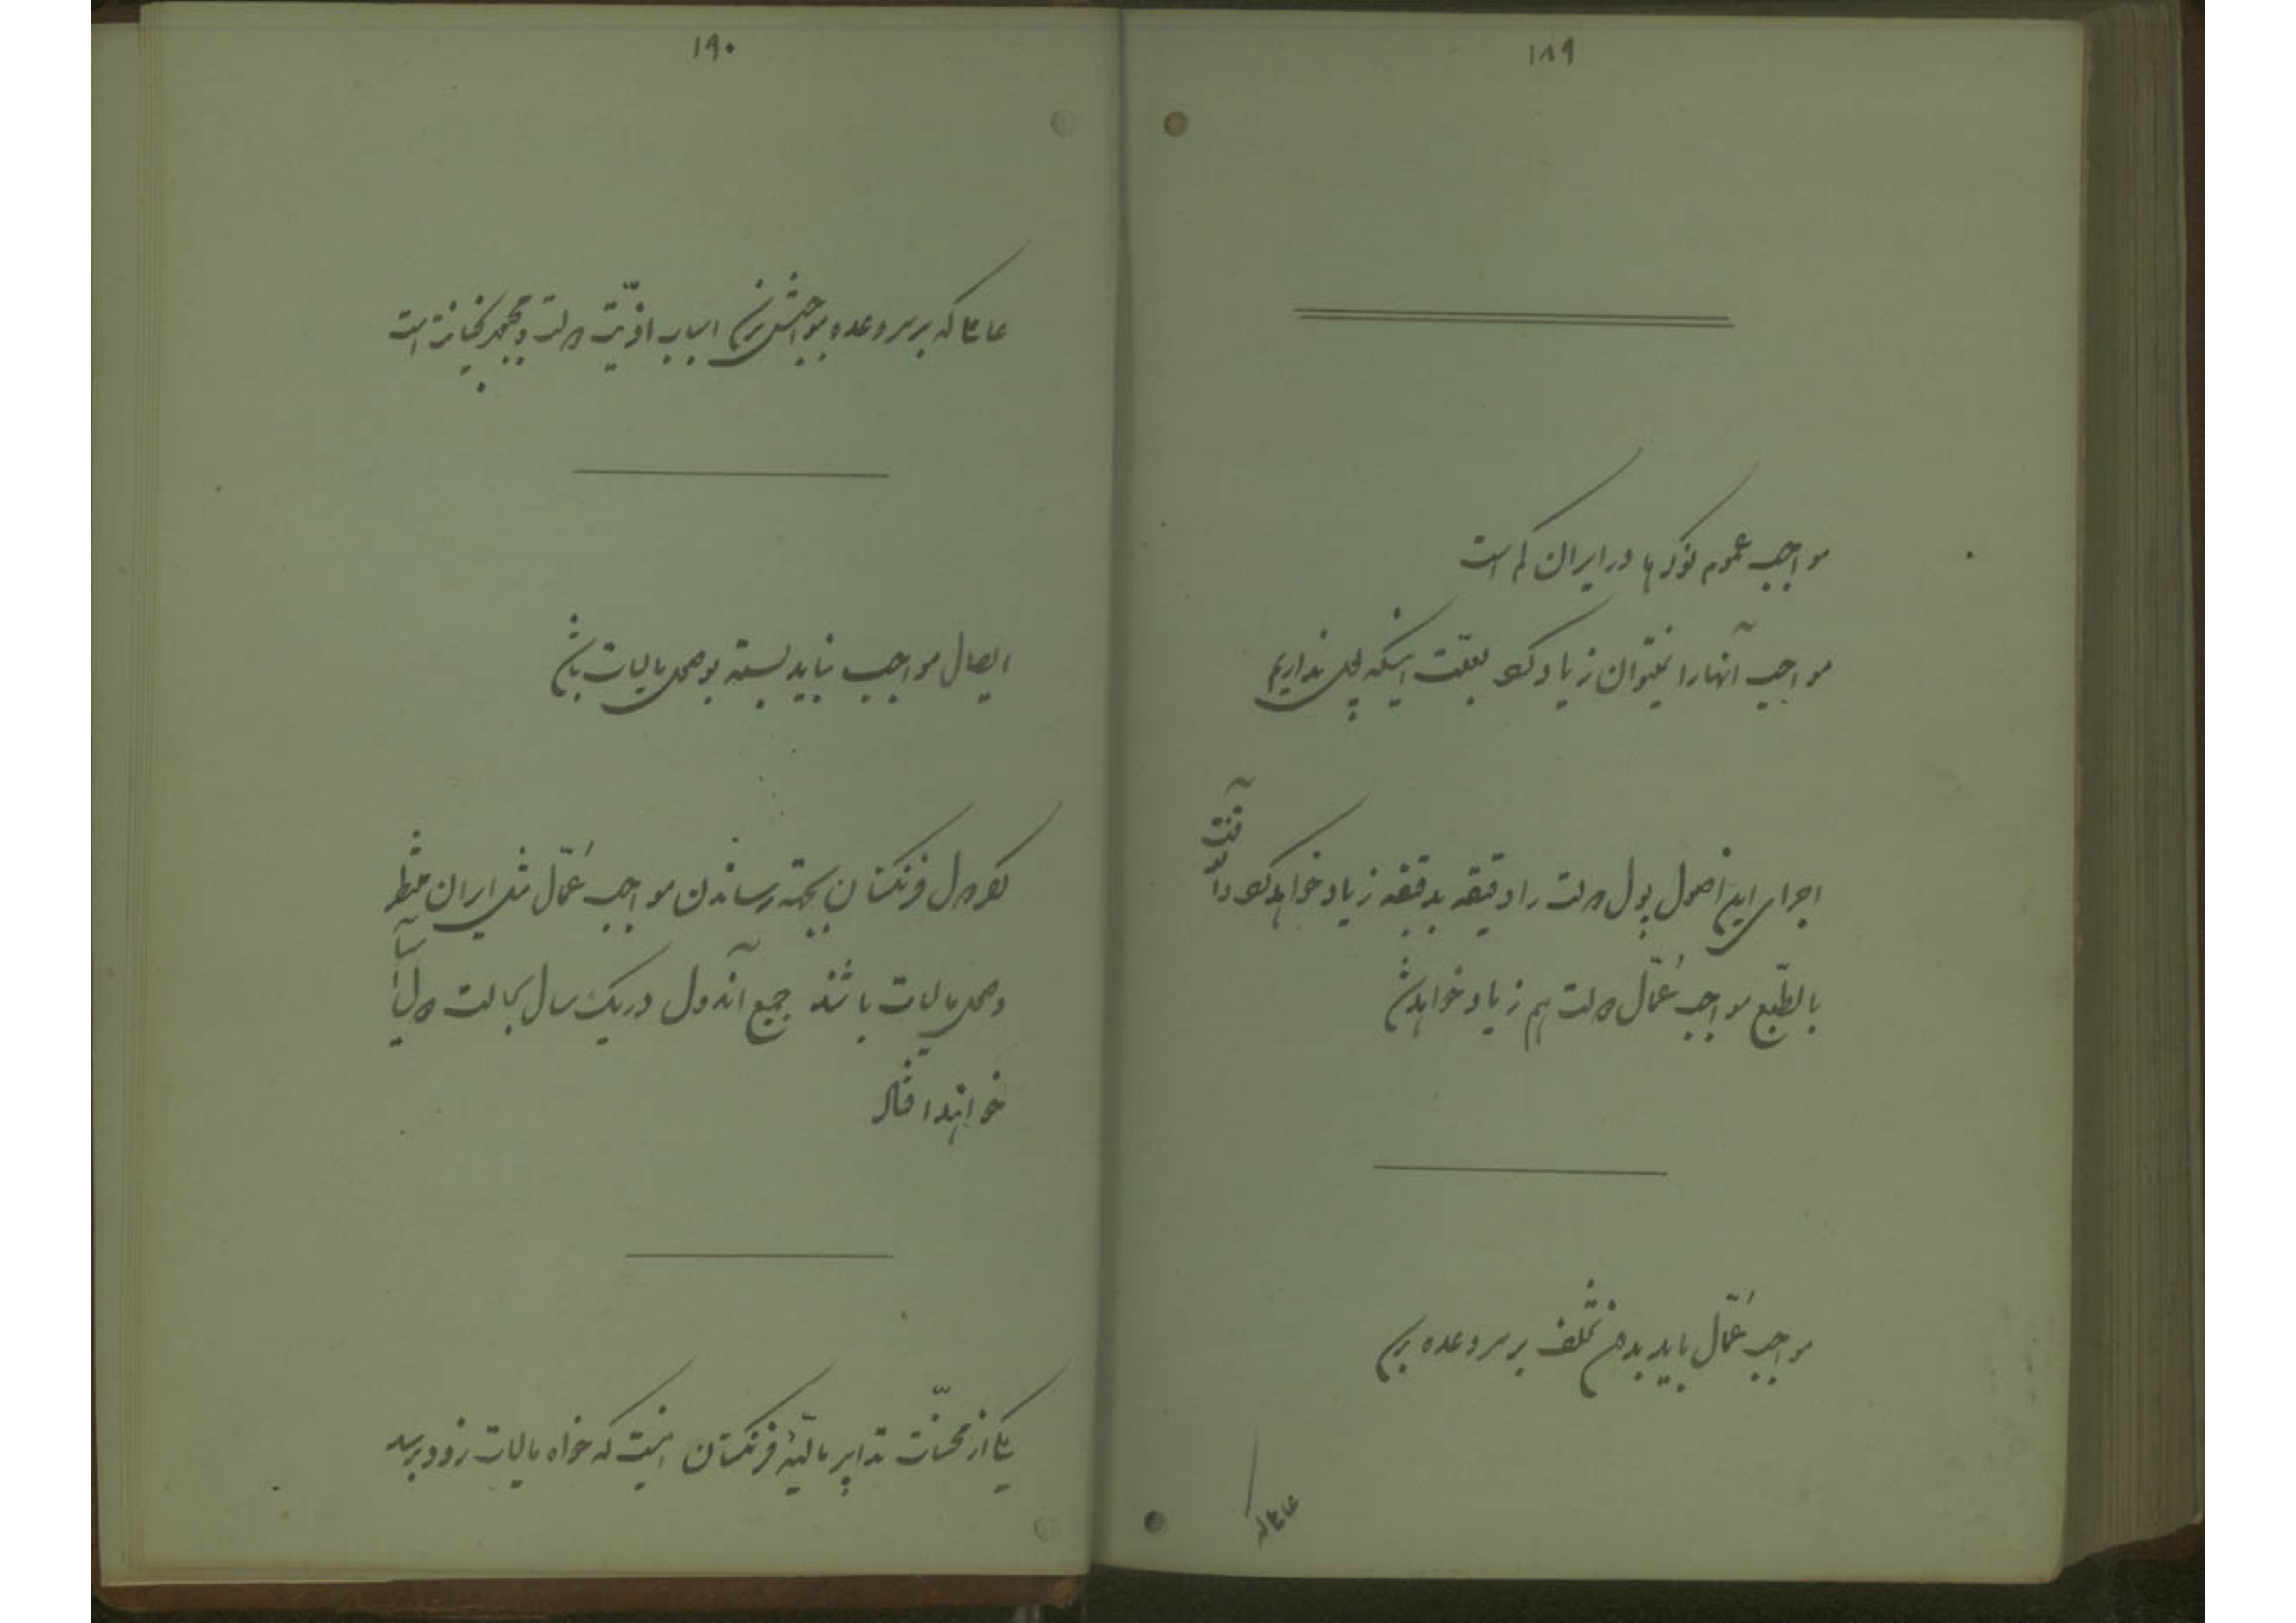 ۱۸۹
مواجب عموم نوکرها در ایران کم است
مواجب آنها را نمیتوان زیاد کرد بعلّت اینکه پول نداریم
اجرای این اصول پول دولت را دقیقه بدقیقه زیاد خواهد کرد و آنوقت
بالطّبع مواجب عُمّال دولت هم زیاد خواهد شد
مواجب عُمّال باید بدون تخلف بر سر وعده برسد
عاملی که
۱۹۰
عاملی که بر سر وعده بمواجبش نرسد اسباب اذیّت دولت و مجبور بخیانت است
ایصال مواجب نباید بسته بوصول مالیات باشد
هرگاه دول فرنگستان بجهة رساندن مواجب عُمّال مثل ایران منتظر
وصول مالیات باشند جمیع آن دول در یک سال بحالت دولت آسیا
خواهند افتاد
یکی از محسّنات تدابیر مالیّهٔ فرنگستان اینست که خواه مالیات زود برسد